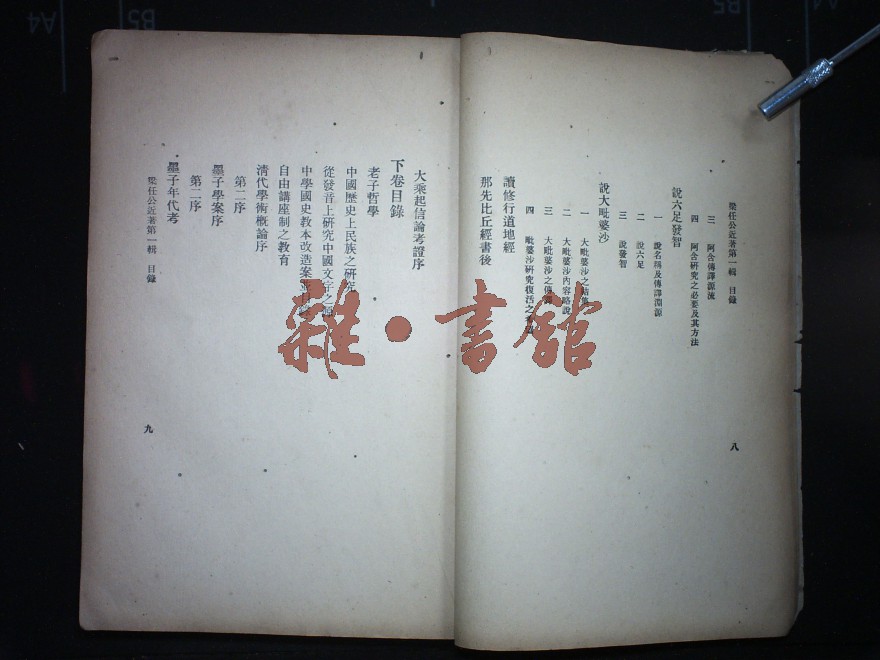 梁任公近著第一輯 目錄
三 阿含傳譯源流
四 阿含研究之必要及其方法
說六足發智
一 說名稱及傳譯淵源
二 說六足
三 說發智
說大毗婆沙
一 大毗婆沙之結集
二 大毗婆沙內容略說
三 大毗婆沙之傳譯
四 毗婆沙研究復活之
讀修行道地經
那先比丘經書後
八
大乘起信論考證序
下卷目錄
老子哲學
中國歷史上民族之研究
從發音上研究中國文字之源
中學國史教本改造案並目錄
自由講座制之教育
清代學術概論序
第二序
墨子學案序
第二序
墨子年代考
梁任公近著第一輯 目錄
九
雜·書館
A4
B5
B5
A4